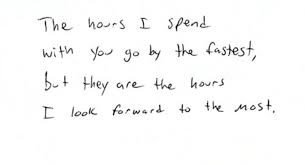 The hours I spend
with you go by the fastest,
but they are the hours
I look forward to the most.